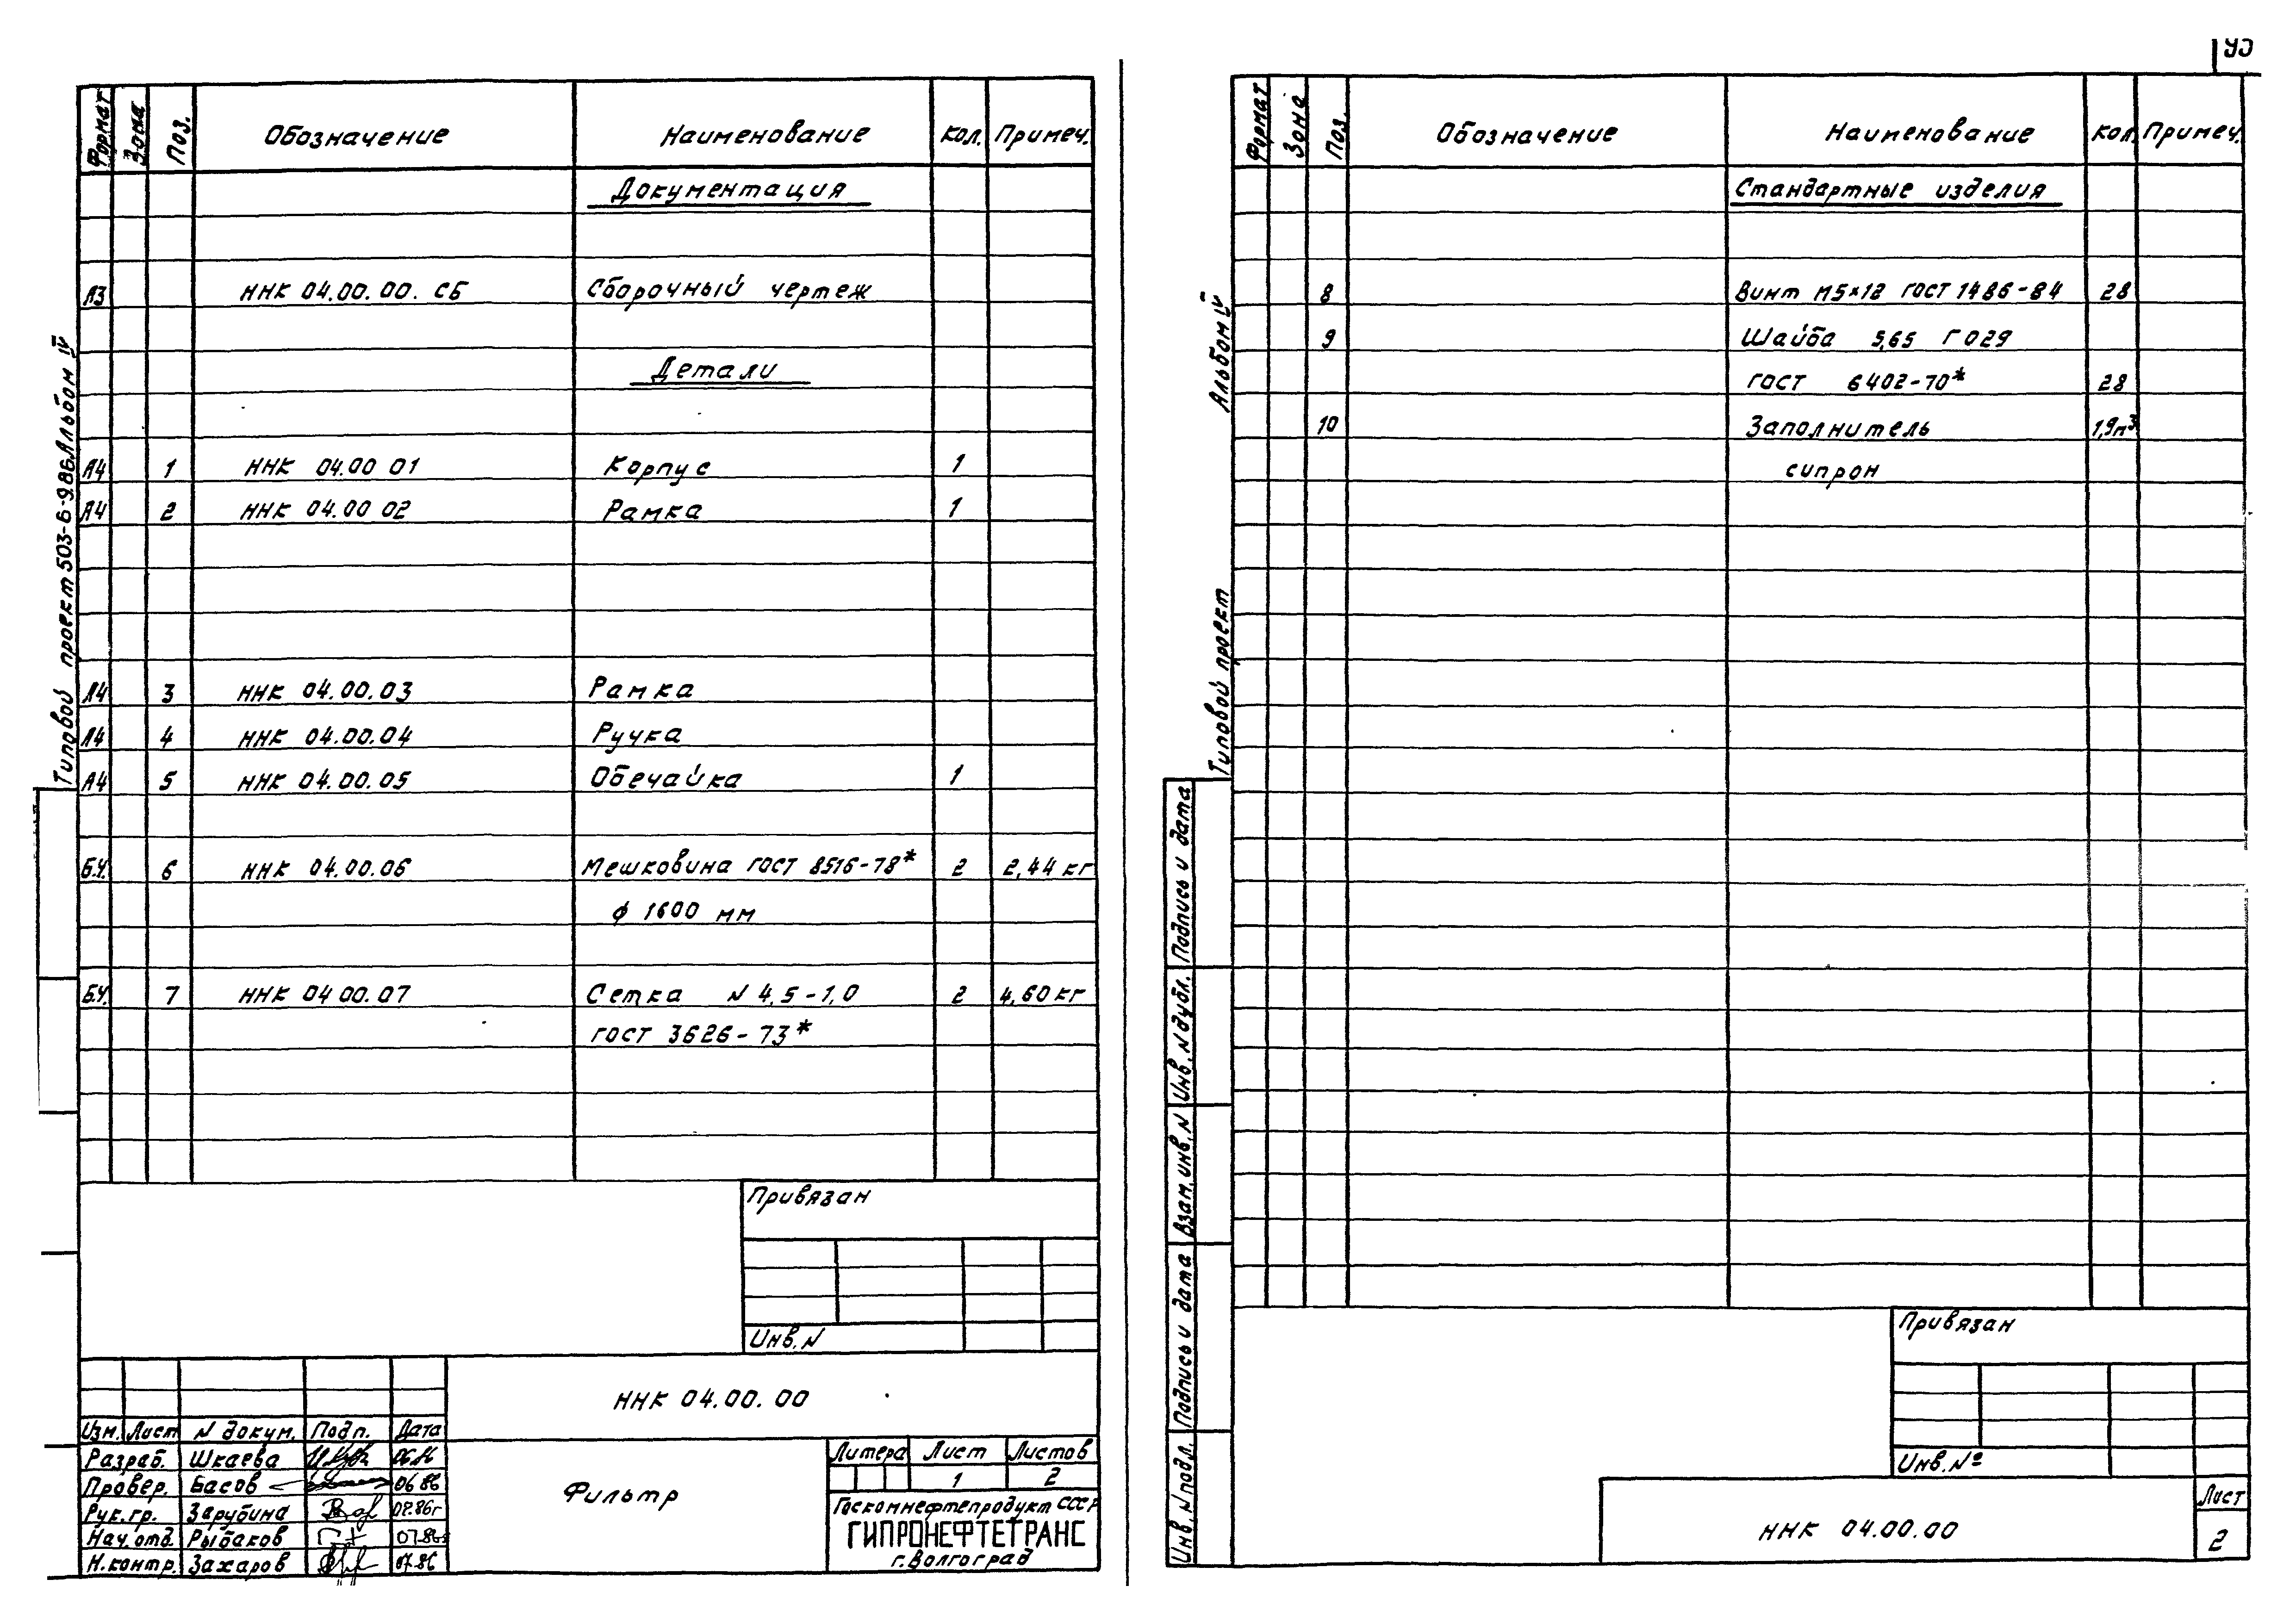 Формат Зона Поз. Обозначение Наименование Кол. Примеч.
Документация
А3 ННК 04.00.00. СБ Сборочный чертеж
Детали
А4 1 ННК 04.00 01 Корпус 1
А4 2 ННК 04.00 02 Рамка 1
А4 3 ННК 04.00.03 Рамка
А4 4 ННК 04.00.04 Ручка
А4 5 ННК 04.00.05 Обечайка 1
Б.Ч. 6 ННК 04.00.06 Мешковина ГОСТ 8516-78* 2 2,44 кг
ф 1600 мм
Б.Ч. 7 ННК 04 00.07 Сетка N 4,5-1,0 2 4,60 кг
ГОСТ 3626-73*
Типовой проект 503-6-9.86 Альбом IV
Привязан
Инв. N
ННК 04.00.00
Изм. Лист N докум. Подп. Дата
Разраб. Шкаева 06.86
Провер. Басов 06 86
Рук.гр. Зарубина 07.86г
Нач.отд. Рыбаков 07.86г
Н.контр. Захаров 07.86
Фильтр
Литера Лист Листов
1 2
Госкомнефтепродукт СССР
ГИПРОНЕФТЕТРАНС
г. Волгоград
Формат Зона Поз. Обозначение Наименование Кол. Примеч.
Стандартные изделия
8 Винт М5×12 ГОСТ 1486-84 28
9 Шайба 5,65 Г 029
ГОСТ 6402-70* 28
10 Заполнитель 1,9м³
сипрон
Типовой проект Альбом IV
Подпись и дата
Инв. N дубл.
Взам. инв. N
Подпись и дата
Инв. N подл.
Привязан
Инв. №
ННК 04.00.00
Лист
2